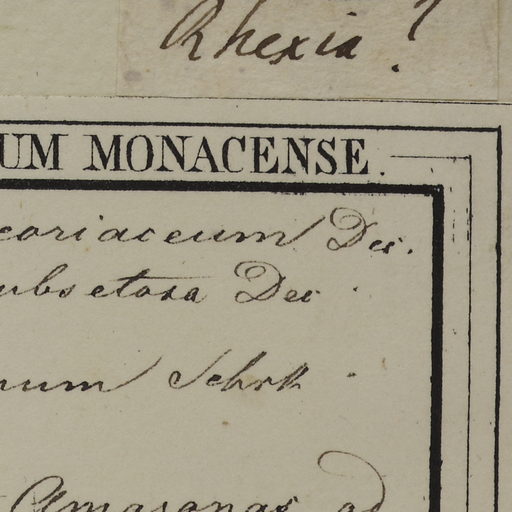 Rhexia ?
UM MONACENSE.
coriaceum Dec.
ubsetosa Dec
num Schrk
Amazonas ad